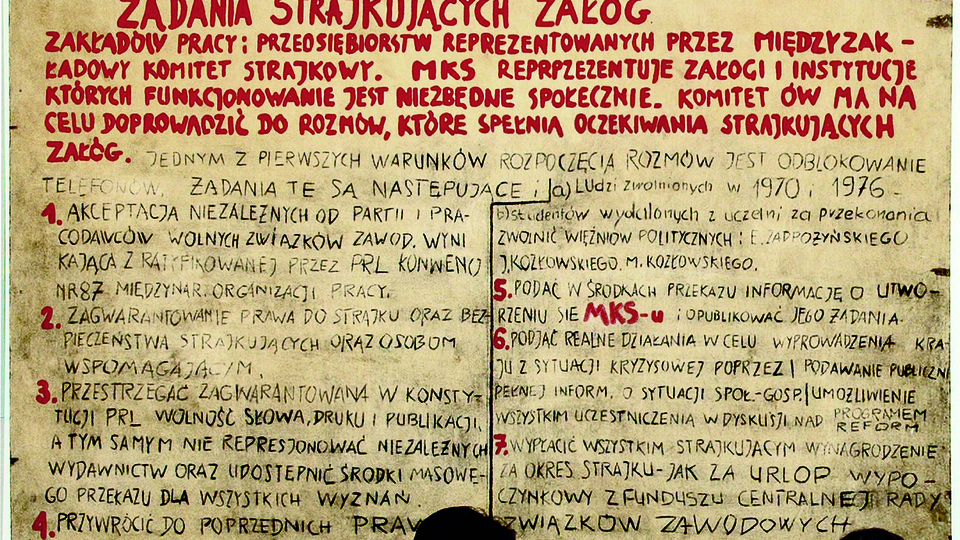 ŻĄDANIA STRAJKUJĄCYCH ZAŁÓG
ZAKŁADÓW PRACY i PRZEDSIĘBIORSTW REPREZENTOWANYCH PRZEZ MIĘDZYZAK-
ŁADOWY KOMITET STRAJKOWY. MKS REPRPZEZENTUJE ZAŁOGI I INSTYTUCJE
KTÓRYCH FUNKCJONOWANIE JEST NIEZBĘDNE SPOŁECZNIE. KOMITET ÓW MA NA
CELU DOPROWADZIĆ DO ROZMÓW, KTÓRE SPEŁNIĄ OCZEKIWANIA STRAJKUJĄCYCH
ZAŁÓG. JEDNYM Z PIERWSZYCH WARUNKÓW ROZPOCZĘCIA ROZMÓW JEST ODBLOKOWANIE
TELEFONÓW. ŻĄDANIA TE SĄ NASTĘPUJĄCE:
1. AKCEPTACJA NIEZALEŻNYCH OD PARTII I PRA-
CODAWCÓW WOLNYCH ZWIĄZKÓW ZAWOD. WYNI
KAJĄCA Z RATYFIKOWANEJ PRZEZ PRL KONWENCJ
NR87 MIĘDZYNAR. ORGANIZACJI PRACY.
2. ZAGWARANTOWANIE PRAWA DO STRAJKU ORAZ BEZ-
PIECZEŃSTWA STRAJKUJĄCYCH ORAZ OSOBOM
WSPOMAGAJĄCYM.
3. PRZESTRZEGAĆ ZAGWARANTOWANĄ W KONSTY-
TUCJI PRL WOLNOŚĆ SŁOWA, DRUKU I PUBLIKACJI,
A TYM SAMYM NIE REPRESJONOWAĆ NIEZALEŻNYCH
WYDAWNICTW ORAZ UDOSTĘPNIĆ ŚRODKI MASOWE-
GO PRZEKAZU DLA WSZYSTKICH WYZNAŃ
4. PRZYWRÓCIĆ DO POPRZEDNICH PRAW
a) Ludzi zwolnionych w 1970 i 1976-
b) studentów wydalonych z uczelni za przekonania
ZWOLNIĆ WIĘŹNIÓW POLITYCZNYCH: E. ZADROŻYŃSKIEGO
J. KOZŁOWSKIEGO. M. KOZŁOWSKIEGO.
5. PODAĆ W ŚRODKACH PRZEKAZU INFORMACJĘ O UTWO-
RZENIU SIĘ MKS-u i OPUBLIKOWAĆ JEGO ŻĄDANIA.
6. PODJĄĆ REALNE DZIAŁANIA W CELU WYPROWADZENIA KRA-
JU Z SYTUACJI KRYZYSOWEJ POPRZEZ PODAWANIE PUBLICZNI
PEŁNEJ INFORM. O SYTUACJI SPOŁ-GOSP. UMOŻLIWIENIE
WSZYSTKIM UCZESTNICZENIA W DYSKUSJI NAD PROGRAMEM
REFORM
7. WYPŁACIĆ WSZYSTKIM STRAJKUJĄCYM WYNAGRODZENIE
ZA OKRES STRAJKU-JAK ZA URLOP WYPO-
CZYNKOWY Z FUNDUSZU CENTRALNEJ RADY
ZWIĄZKÓW ZAWODOWYCH